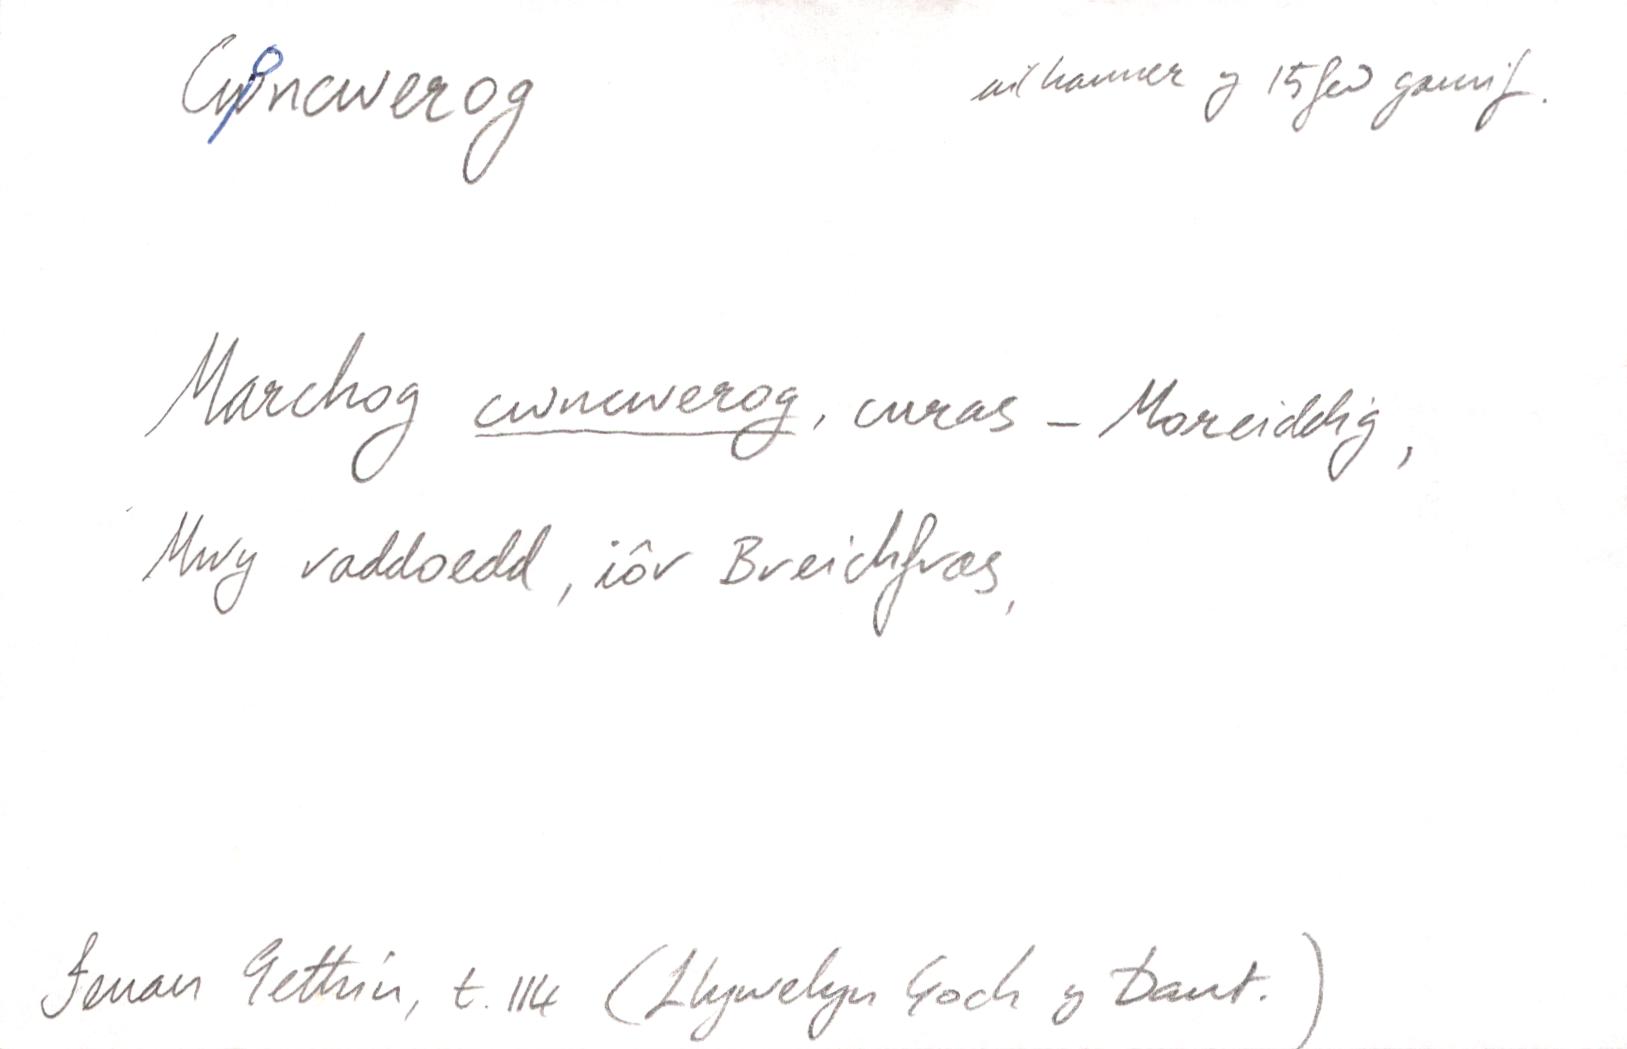 Concwerog
ail hanner y 15fed ganrif.
Marchog cwncwerog, curas – Moreiddig,
Mwy raddoedd, iôr Breichfras,
Ieuan Gethin, t. 114 (Llywelyn Goch y Dant.)